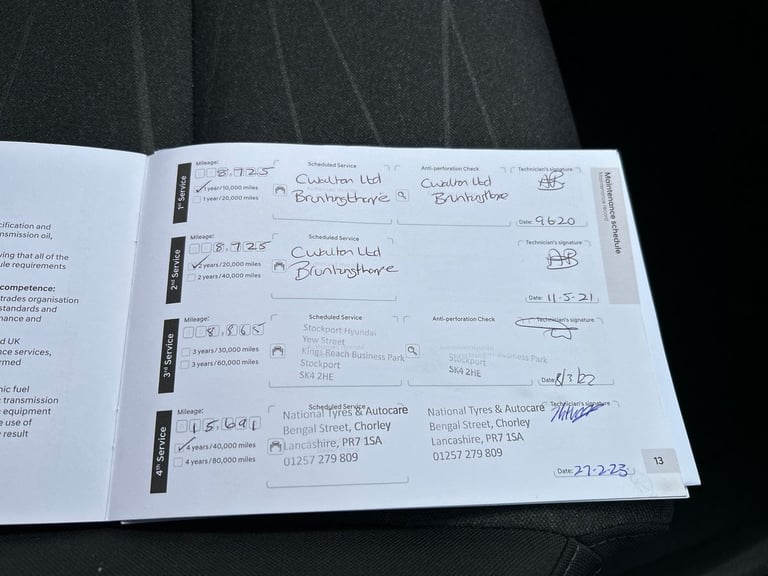 cification and
nsmission oil,
ving that all of the
ule requirements
competence:
trades organisation
standards and
nance and
d UK
ce services,
rmed
nic fuel
transmission
equipment
e use of
result
1st Service
Mileage:
8,725
1 year/10,000 miles
1 year/20,000 miles
Scheduled Service
Cwalton Ltd
Bruntingthorpe
Anti-perforation Check
Cwalton Ltd
Bruntingthorpe
Technician's signature
Date: 9620
2nd Service
Mileage:
8,725
2 years/20,000 miles
2 years/40,000 miles
Scheduled Service
Cwalton Ltd
Bruntingthorpe
Technician's signature
Date: 11.5.21
3rd Service
Mileage:
8,865
3 years/30,000 miles
3 years/60,000 miles
Scheduled Service
Stockport Hyundai
Yew Street
Kings Reach Business Park
Stockport
SK4 2HE
Anti-perforation Check
Business Park
Stockport
SK4 2HE
Technician's signature
Date: 8/3/22
4th Service
Mileage:
15,691
4 years/40,000 miles
4 years/80,000 miles
Scheduled Service
National Tyres & Autocare
Bengal Street, Chorley
Lancashire, PR7 1SA
01257 279 809
National Tyres & Autocare
Bengal Street, Chorley
Lancashire, PR7 1SA
01257 279 809
Technician's signature
Date: 27-2-23
Maintenance schedule
Maintenance record
13